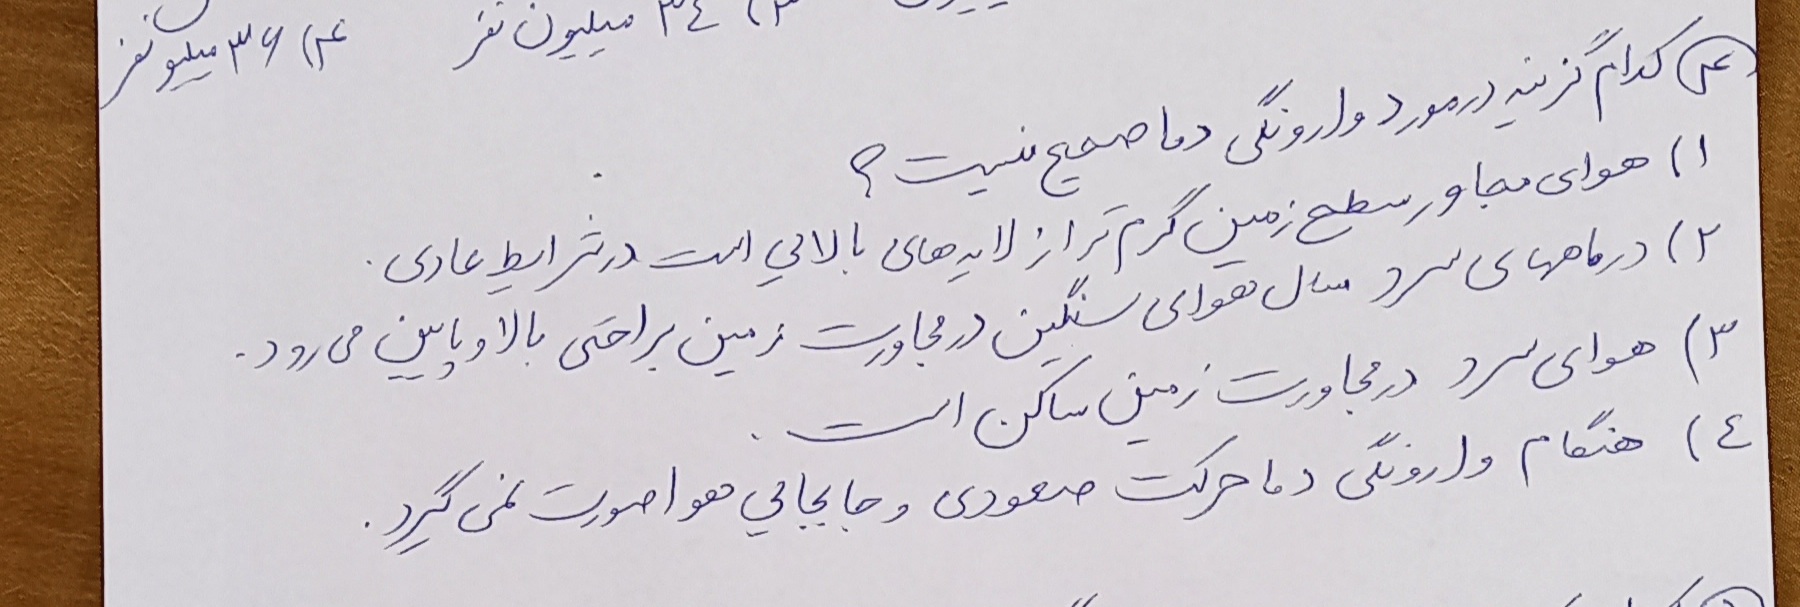 ۳) ۳٤ میلیون نفر ۴) ۳۶ میلیو نفر
۴) کدام گزینه درمورد وارونگی دما صحیح نیست ؟
۱) هوای مجاور سطح زمین گرم تر از لایه های بالایی است در شرایط عادی .
۲) در ماههای سرد سال هوای سنگین در مجاورت زمین براحتی بالا و پایین می رود .
۳) هوای سرد در مجاورت زمین ساکن است .
٤) هنگام وارونگی دما حرکت صعودی و جابجایی هوا صورت نمی گیرد .